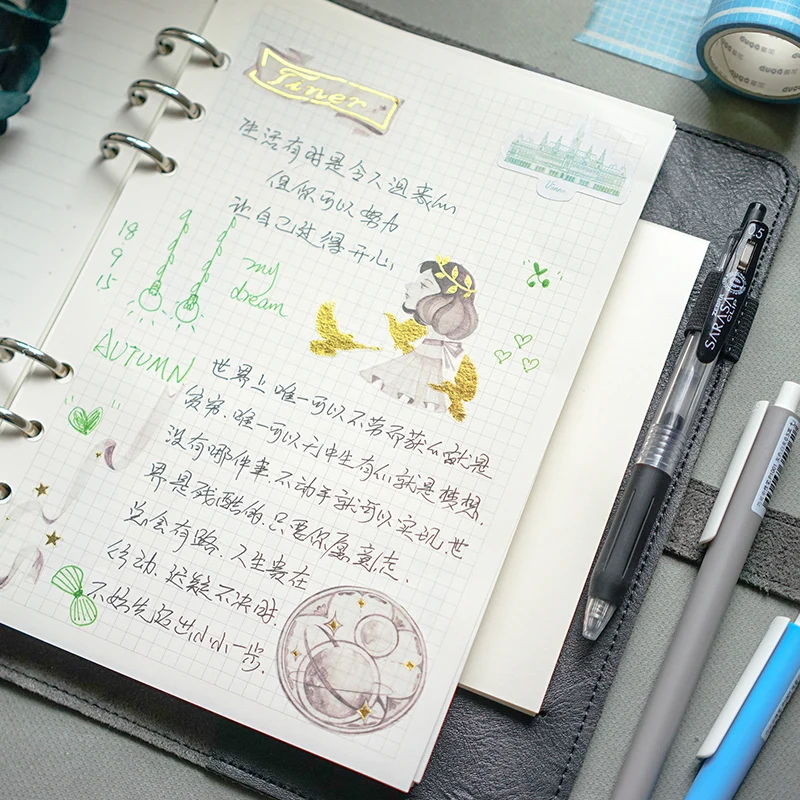 Tiner
生活有时是令人沮丧的
但你可以努力
让自己过得开心
18
9
15
my
dream
AUTUMN
世界上唯一可以不劳而获的就是
贫穷.唯一可以无中生有的就是梦想.
没有哪件事.不动手就可以实现.世
界是残酷的.只要你愿意走、
总会有路.人生贵在
行动.迟疑不决时.
不妨先迈出小小一步.
0.5
SARASA
CLIP